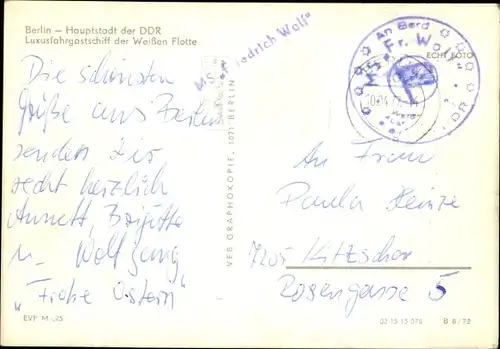 Berlin – Hauptstadt der DDR
Luxusfahrgastschiff der Weißen Flotte
MS „Friedrich Wolf"
An Bord
MS „Fr. Wolf"
DDR
ECHT FOTO
Die schönsten
Grüße aus Berlin
senden Dir
recht herzlich
Annett, Brigitte
u. Wolfgang
„Frohe Ostern"
VEB GRAPHOKOPIE, 1071 BERLIN
An Frau
Paula Heinze
7205 Kitzscher
Rosengasse 5
EVP M -,25
02 15 15 076
B 8/72